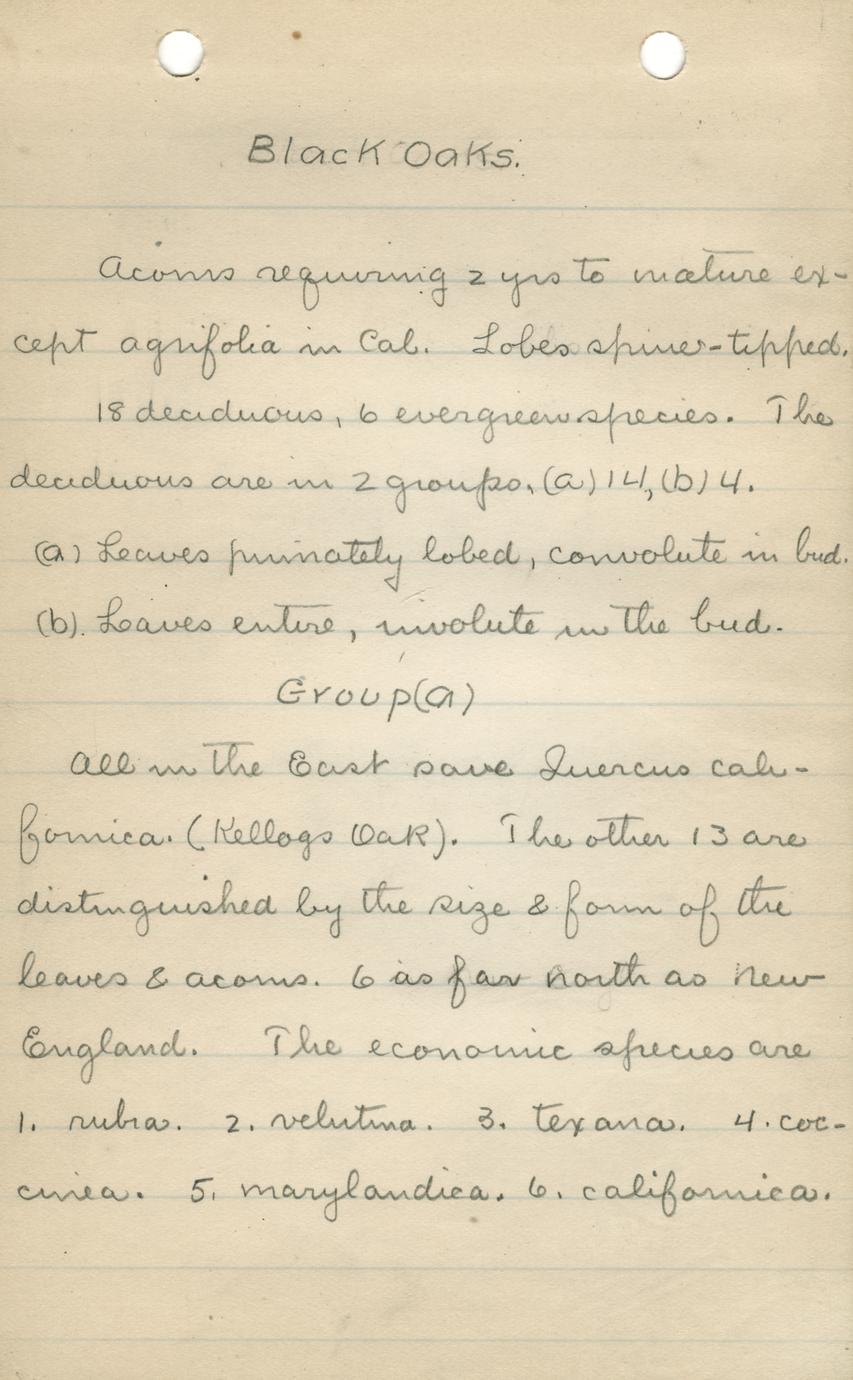 Black Oaks.
Acorns requiring 2 yrs to mature ex-
cept agrifolia in Cal. Lobes spine-tipped.
18 deciduous, 6 evergreen species. The
deciduous are in 2 groups, (a) 14, (b) 4.
(a) Leaves pinnately lobed, convolute in bud.
(b). Leaves entire, involute in the bud.
Group (a)
All in the East save Quercus cali-
fornica. (Kellogs Oak). The other 13 are
distinguished by the size & form of the
leaves & acorns. 6 as far north as New
England. The economic species are
1. rubra. 2. velutina. 3. texana. 4. coc-
cinea. 5. marylandica. 6. californica.